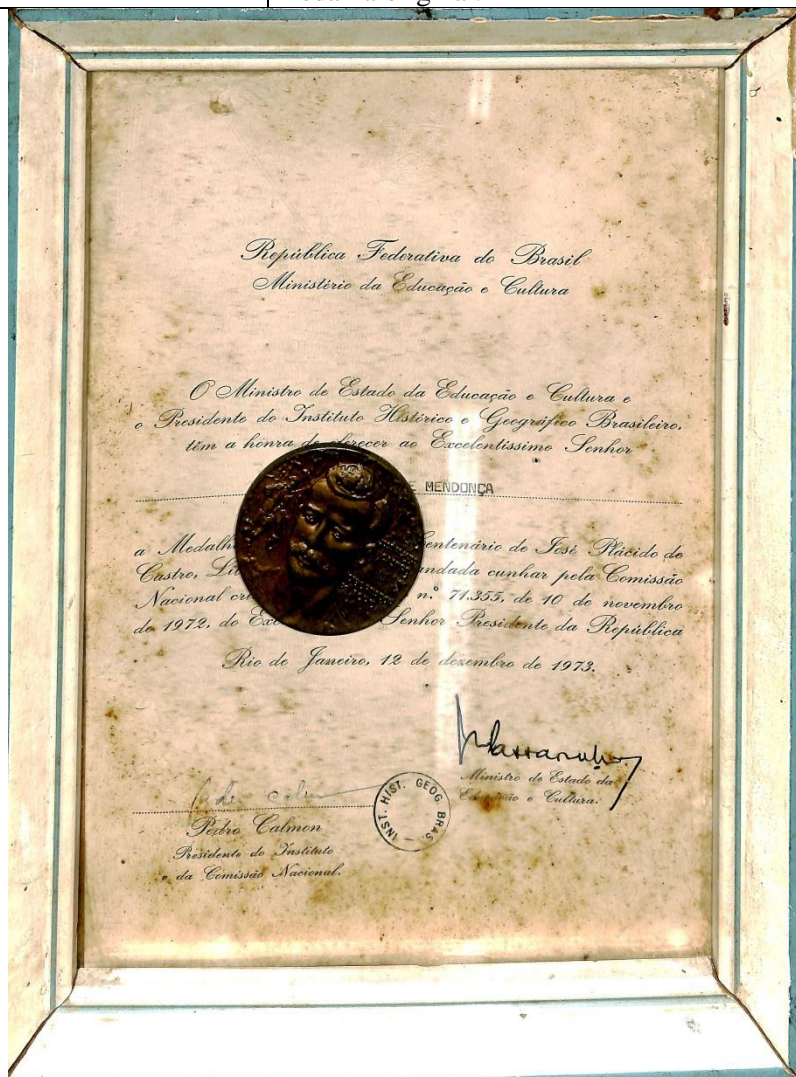 República Federativa do Brasil
Ministério da Educação e Cultura
O Ministro de Estado da Educação e Cultura e
o Presidente do Instituto Histórico e Geográfico Brasileiro,
têm a honra de oferecer ao Excelentíssimo Senhor
E MENDONÇA
a Medalh entenário de José Plácido de
Castro, Li andada cunhar pela Comissão
Nacional cri n.º 71.355, de 10 de novembro
de 1972, do Exc Senhor Presidente da República
Rio de Janeiro, 12 de dezembro de 1973.
Ministro de Estado da
Educação e Cultura.
INST. HIST. GEOG. BRAS.
Pedro Calmon
Presidente do Instituto
e da Comissão Nacional.